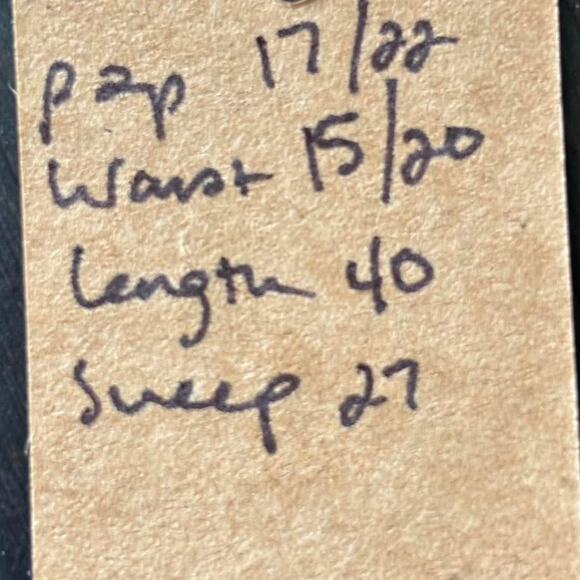 p2p 17/22
Waist 15/20
Length 40
Sweep 27